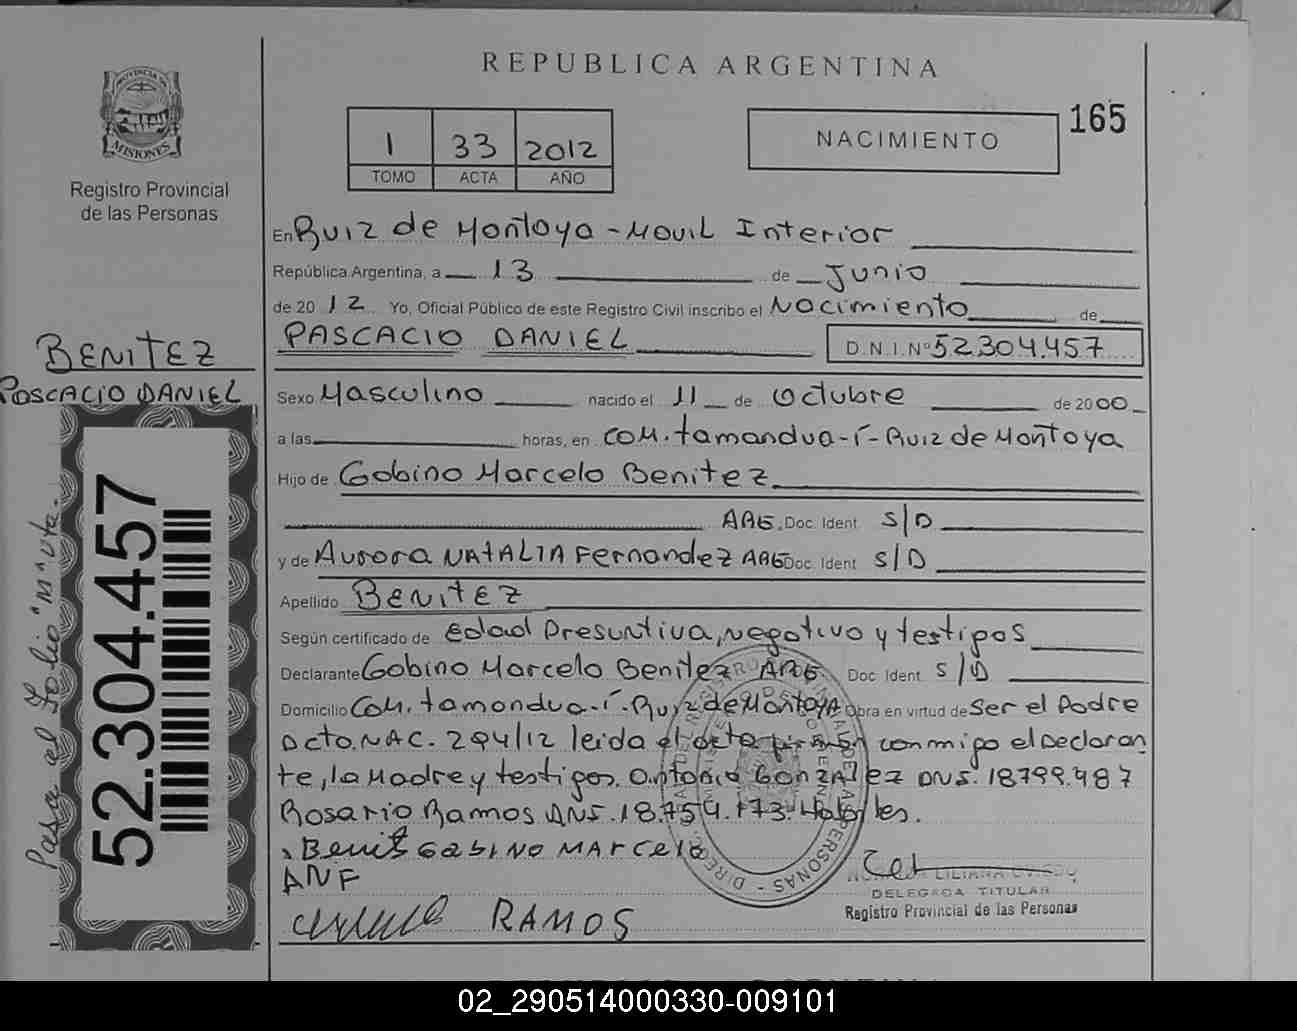 REPUBLICA ARGENTINA
PROVINCIA DE MISIONES
Registro Provincial
de las Personas
1 33 2012
TOMO ACTA AÑO
NACIMIENTO
165
En Ruiz de Montoya - Movil Interior
República Argentina, a 13 de Junio
de 2012 Yo, Oficial Público de este Registro Civil inscribo el Nacimiento de
PASCACIO DANIEL D.N.I.Nº 52.304.457
BENITEZ
PASCACIO DANIEL
Sexo Masculino nacido el 11 de Octubre de 2000
a las horas, en COM. tamandua-í-Ruiz de Montoya
Hijo de Gabino Marcelo Benitez
ARG. Doc. Ident S/D
y de Aurora NATALIA Fernandez ARG Doc. Ident S/D
Apellido BENITEZ
Según certificado de edad Presuntiva, negativo y testigos
Declarante Gabino Marcelo Benitez ARG. Doc Ident S/D
Domicilio COM. tamandua-í-Ruiz de Montoya Obra en virtud de Ser el Padre
Dcto. NAC. 294/12 leida el acta firman conmigo el Declaran
te, la Madre y testigos. Antonio Gonzalez DNI. 18799.487
Rosario Ramos DNI. 18.754.173. Habiles.
Benit GABINO MARCELO
ANF
RAMOS
LILIANA
DELEGADA TITULAR
Registro Provincial de las Personas
Pasa al Folio
52.304.457
02_290514000330-009101